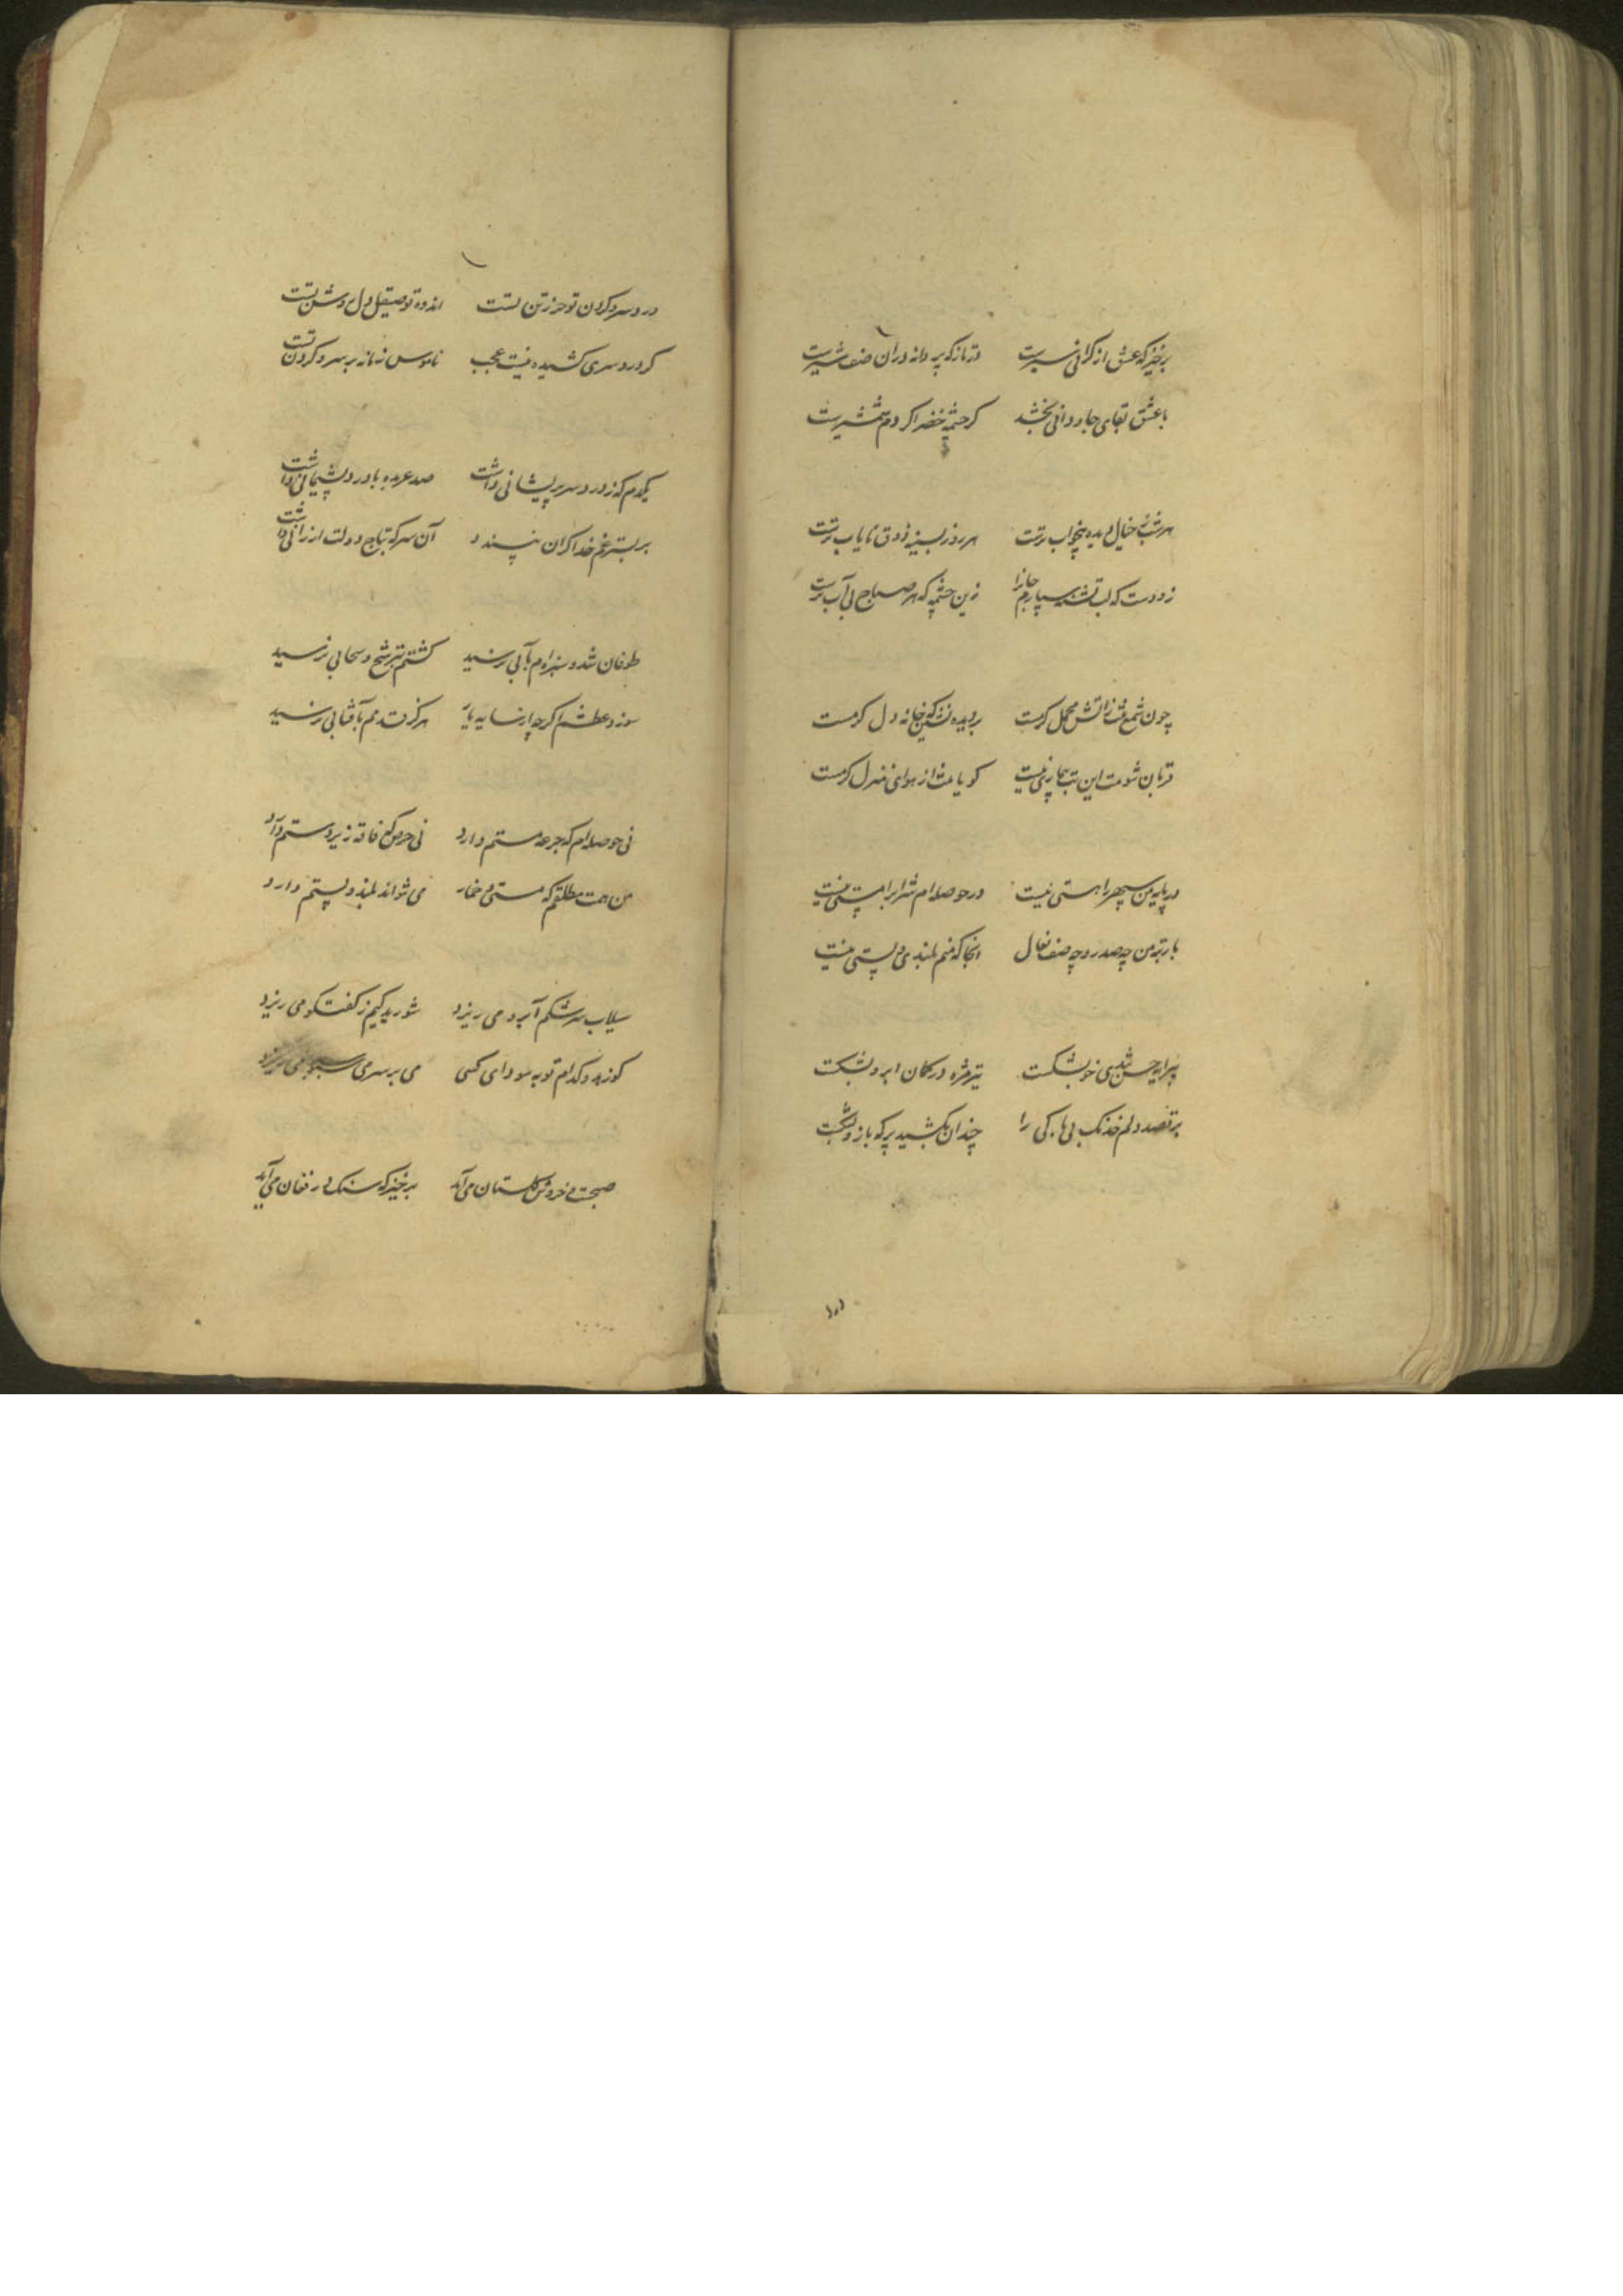 برخیز که عشق از کرانی سیرست در تازکه پروانه دران صف شیرست
با عشق بقای جاودانی بخشد کر چشمه خضر اکر دم شمشیرست
هر شب ز خیال دیده بیخواب ترست هر روز بسینه ذوق نایاب ترست
زودست که لب تشنه سپارم جانرا زین چشمه که هر صباح بی آب ترست
چون شمع تنت ز آتش کرمست بر دیده نشین که خانه دل کرمست
قربان شومت این تب بیماری نیست کویا از هوای منزل کرمست
در پایه من سپهر را هستی نیست در حوصله ام شراب را مستی نیست
با رتبه من چه صدر و چه صف نعال انجا که منم بلندی و پستی نیست
پیرایه حسن شد خو بشکست تیر مژه در کمان ابرو بشکست
بر قصد دلم خدنک بی باکی را چندان بکشید پر که بازو بشکست
درد سر و کردن تو حرز تن تست اندوه تو صیقل دل روشن تست
کر درد سری کشیده نیست عجب ناموس زمانه بر سر و کردن تست
یکدم که ز درد سر پریشانی داشت صد عربده با درد پشیمانی داشت
بر بستر غم خدا کران نپسندد آن سر که بتاج دولت ارزانی داشت
طوفان شد و سبزه ام بآبی نرسید کشتم بترشح سحابی نرسید
سوزد عطشم اکر چه از سایه یار هرکز قدمم بآفتابی نرسید
نی حوصله ام که جرعه مستم دارد نی حرص که فاقه زیر دستم دارد
من همت مطلقم که مستی و خمار می نتواند بلند و پستم دارد
سیلاب سرشکم آبرو می ریزد شوریدکیم ز کفتکو می ریزد
کو زهد و کدام توبه سودای کسی می بر سر می سبو سبو می ریزد
صبحست و خروش کلستان می آید برخیز که سنک در فغان می آید